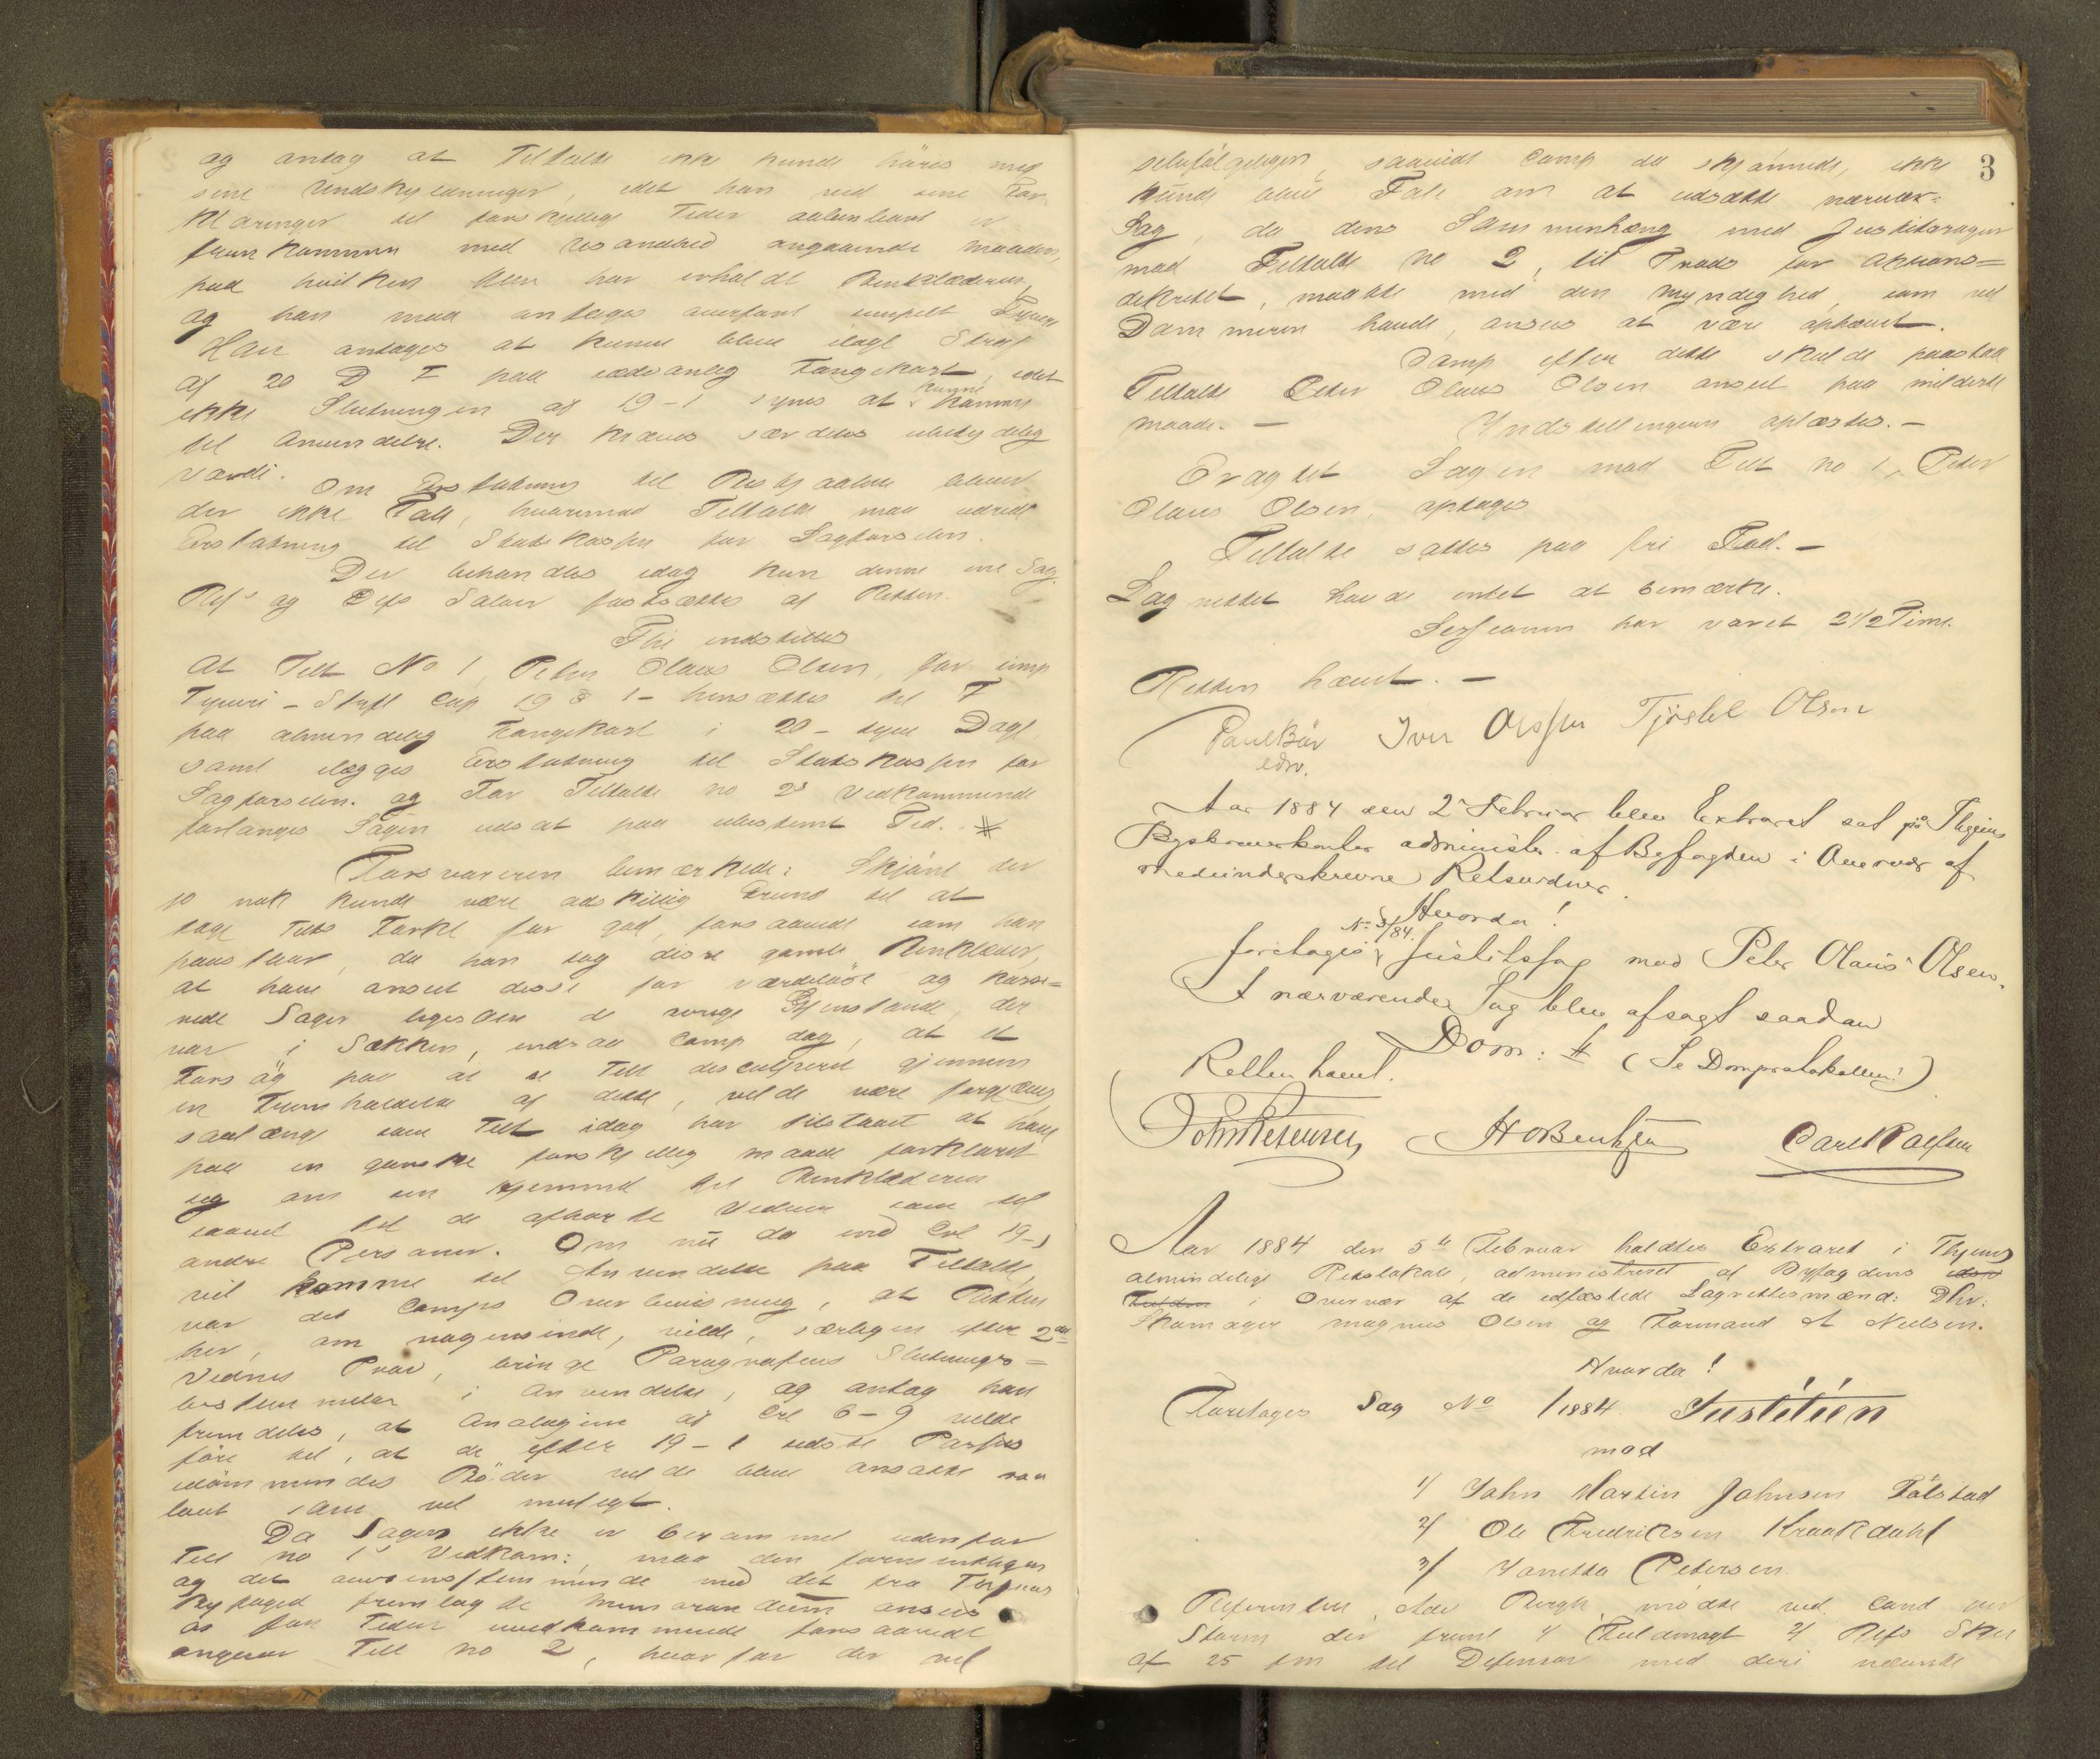 og antog at Tiltalte ikke kunde höres med
sine Undskyldninger, idet han ved sine For-
klaringer til forskjellige Tider aabenbart er
fremkommen med Usandhed angaaende Maaden,
paa hvilken han har erholdt Benklæderne,
og han maa antages overført simpelt Tyveri
Han antages at kunne blive ilagt Straf
af 20 D F paa sædvanlig Fangekost, idet
ikke Slutningen af 19-1 synes at kunne komme
til Anvendelse. Der kræves særdeles ubetydelig
Værdi. Om Erstatning til Bestjaalne bliver
der ikke Tale, hvorimod Tiltalte maa udrede
Erstatning til Statskassen for Sagførselen.
Der behandles idag kun denne ene Sag.
Refs og Defs Salær fastsættes af Retten.
Thi indstilles
At Tilt No 1, Peter Olaus Olsen, for simp
Tyveri - Strfl Cap 19 § 1 - hensættes til F
paa almindelig Fangekost i 20 - tyve Dage
samt ilægges Erstatning til Statskassen for
Sagførselen. og For Tiltalte no 2s Vedkommende
forlanges Sagen udsat paa ubestemt Tid. #
Forsvareren bemærkede: Skjönt der
jo nok kunde være adskillig Grund til at
tage Tilts Forkl for god, forsaavidt som han
paastaar, da han tog disse gamle Benklæder,
at have anseet disse for værdilöse og kasse=
rede Sager ligesom de övrige Gjenstande, der
var i Sækken, indsaa Comp dog, at et
Forsög paa at se Tilt disculperet gjennem
en Fremholdelse af dette, vilde være forgjæves
saalænge som Tilt idag har tilstaaet at have
paa en ganske forskjellig Maade forklaret
sig om sin Hjemmel til Benklæderne
saavel til de afhørte Vidner som til
andre Personer. Om nu da end Crl 19-1
vil komme til Anvendelse paa Tiltalte,
var det Comps Overbevisning, at Retten
her, om nogensinde, vilde, særligen efter 2det
Vidnes Prov, bringe Paragrafens Slutnings=
bestemmelse i Anvendelse, og antog han
fremdeles, at Analogien af Crl 6-9 vilde
före til, at de efter 19-1 sidste Passus
idömmendes Böder vilde blive ansatte saa
lavt som vel muligt.
Da Sagen ikke er berammet udenfor
Tilt no 1s Vedkom:, maa den formentligen
og det overensstemmende med det fra
fremlagte Memorandum ansees
angaar Tilt no 2, hvorfor der vel
3
selvfølgeligen, saavidt Comp da skjönnede, ikke
kunde blive Tale om at udsætte nærvær=
Sag, da dens Sammenhæng med Justitssagen
mod Tiltalte No 2, til Trods for Aktions=
dekretet, maatte med den Myndighed, som ved
Dommeren havde, ansees at være ophævet.
Comp efter dette skulde paastaa
Tiltalte Peter Olaus Olsen anseet paa mildeste
Maade. — Indstillingen oplæstes. —
Eragtet Sagen mod Tilt no 1, Peter
Olaus Olsen, optages
Tiltalte sattes paa fri Fod. —
Lagrettet havde intet at bemærke.
Sessionen har varet 2 1/2 Time.
Retten hævet. —
Paul Bär Iver Olsen Tjöstel Olsen
edsv.
Aar 1884 den 2 Februar blev Extraret sat på Thjems
Byskriverkontor administr. af Byfogden i Overvær af
nedenunderskrevne Retsvidner.
Hvorda!
No 3/84.
foretages Justitssag mod Peter Olaus Olsen.
I nærværende Sag blev afsagt saadan
Dom: # (Se Domprotokollen)
Retten hævet.
Aar 1884 den 5te Februar holdtes Extraret i Thjems
almindelige Retslokale, administreret af Byfogdens edsv
Fuldm i Overvær af de edfæstede Lagrettesmænd: Dhr:
Skomager Magnus Olsen og Formand A Nielsen.
Hvorda!
Foretages Sag No 1/1884. Justitien
mod
1/ John Martin Johnsen Fölstad
2/ Ole Fredriksen Kraakdahl
3/ Janetta Petersen.
Referenten, Adv Bergh, mödte ved Cand
Storm der freml 1/ Fuldmagt 2/ Refs Skr
af 25 f m til Defensor med deri nævnte